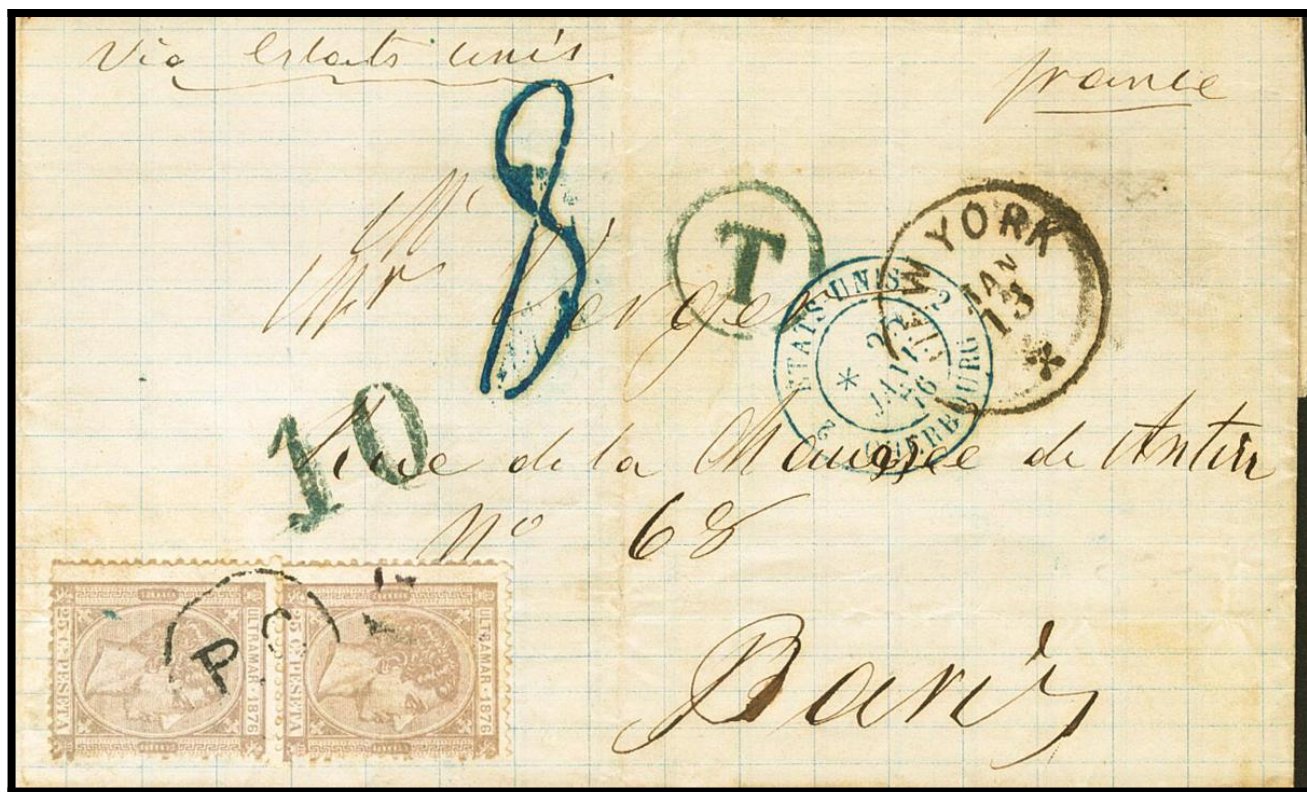 Via Estats unis
france
8
T
W YORK
JAN
13
ETATS-UNIS
2
JANV
76
CHERBOURG
10
Mr
de la Chaussee de Antin
No 68
Paris
25 Cs PESETA
ULTRAMAR·1876
25 Cs PESETA
ULTRAMAR·1876
P. C